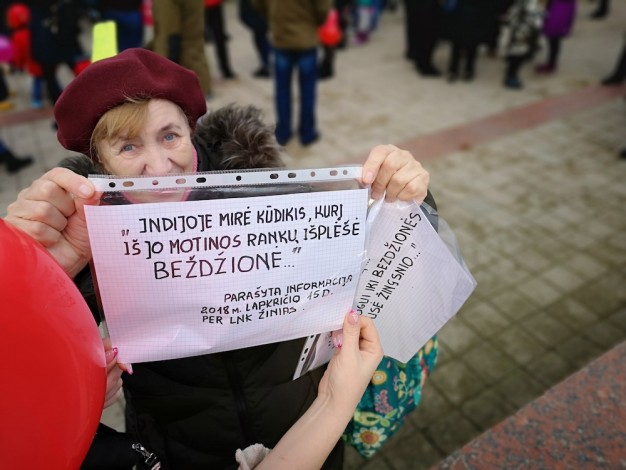 „INDIJOJE MIRĖ KŪDIKIS, KURĮ
IŠ JO MOTINOS RANKŲ IŠPLĖŠĖ
BEŽDŽIONE..."
PARAŠYTA INFORMACIJA
2018 M. LAPKRIČIO 15 D.
PER LNK ŽINIAS.
IKI BEZDŽIONĖS
ŽINGSNIO..."